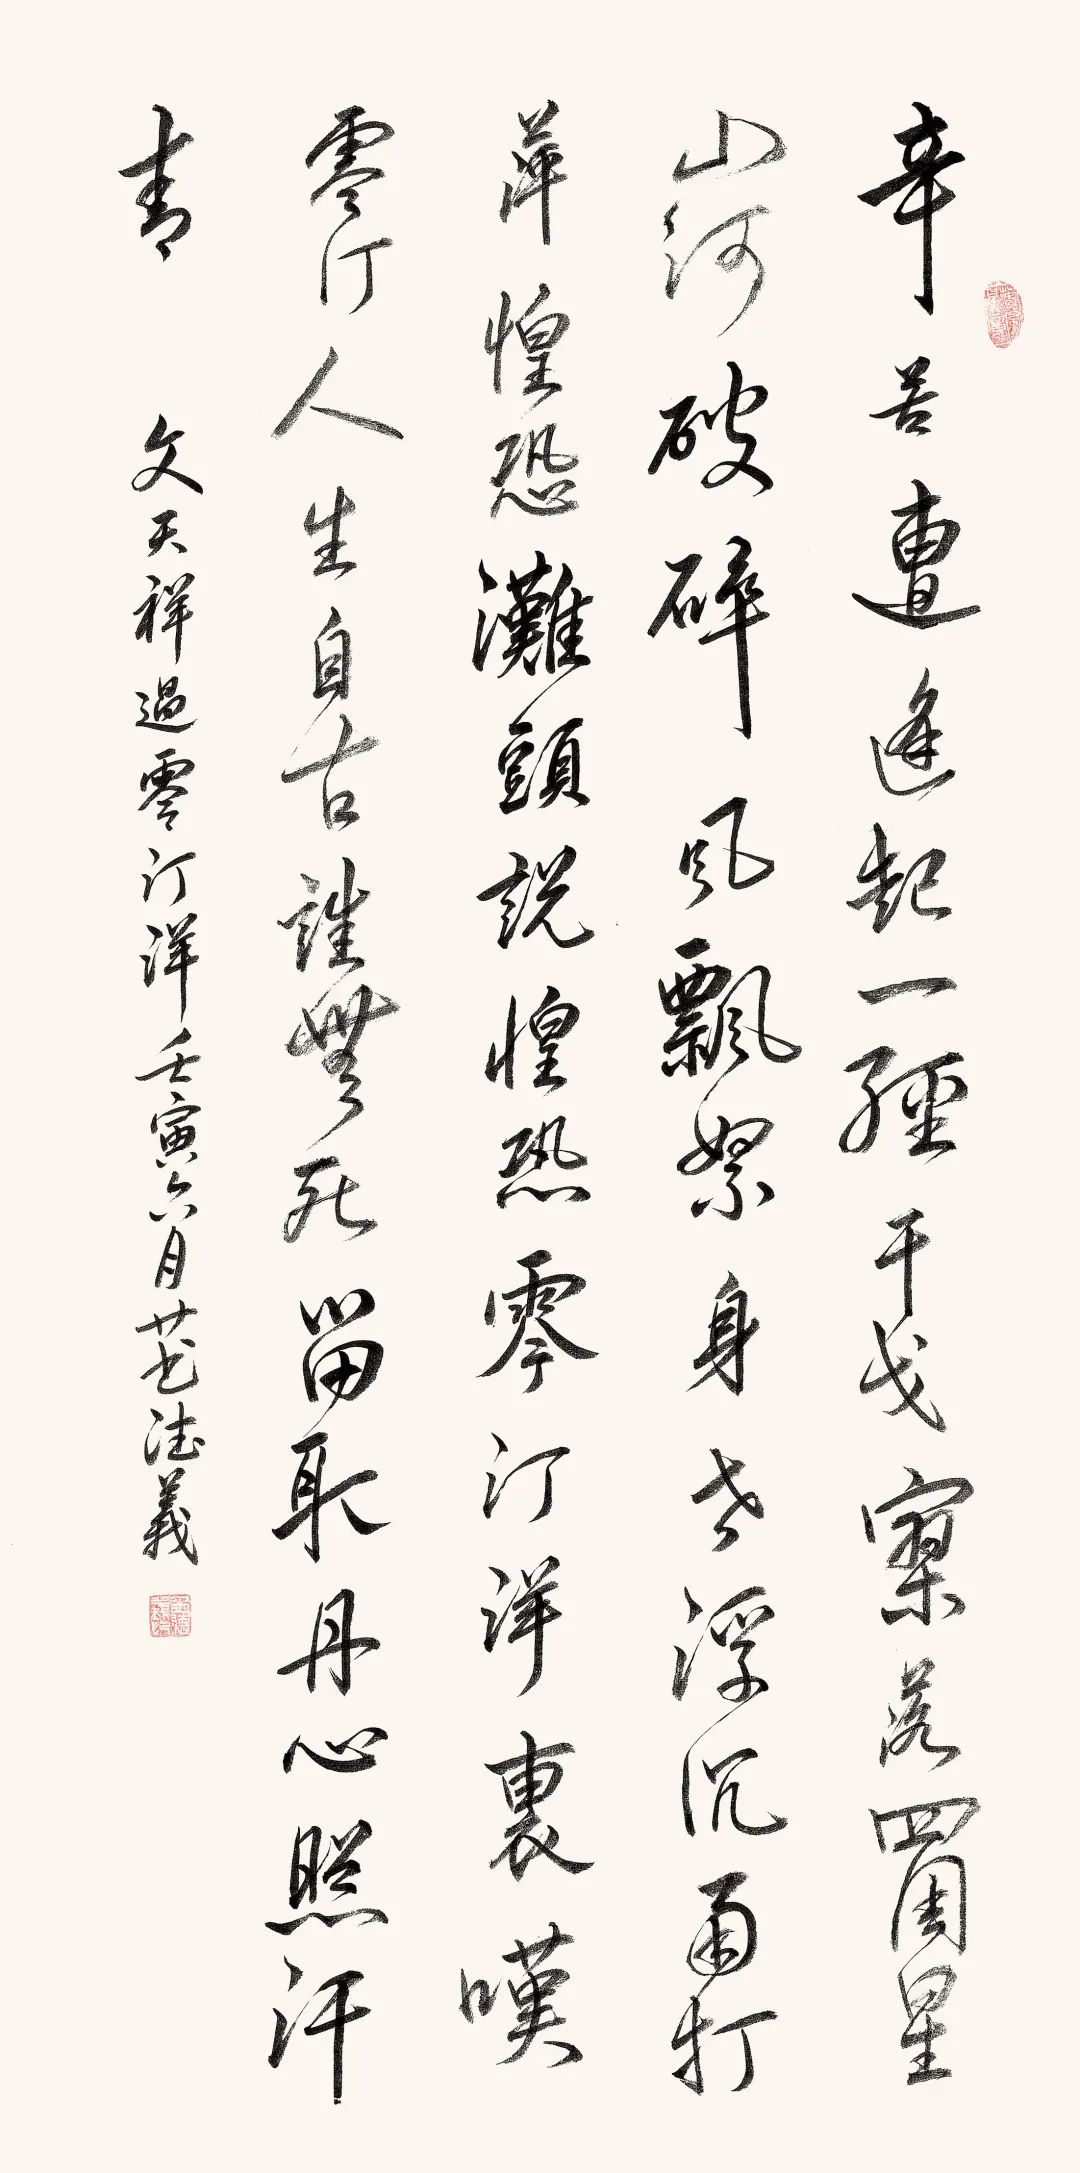 辛苦遭逢起一經干戈寥落四周星
山河破碎風飄絮身世浮沉雨打
萍惶恐灘頭說惶恐零汀洋裏嘆
零汀人生自古誰無死留取丹心照汗
青
文天祥過零汀洋壬寅六月德義